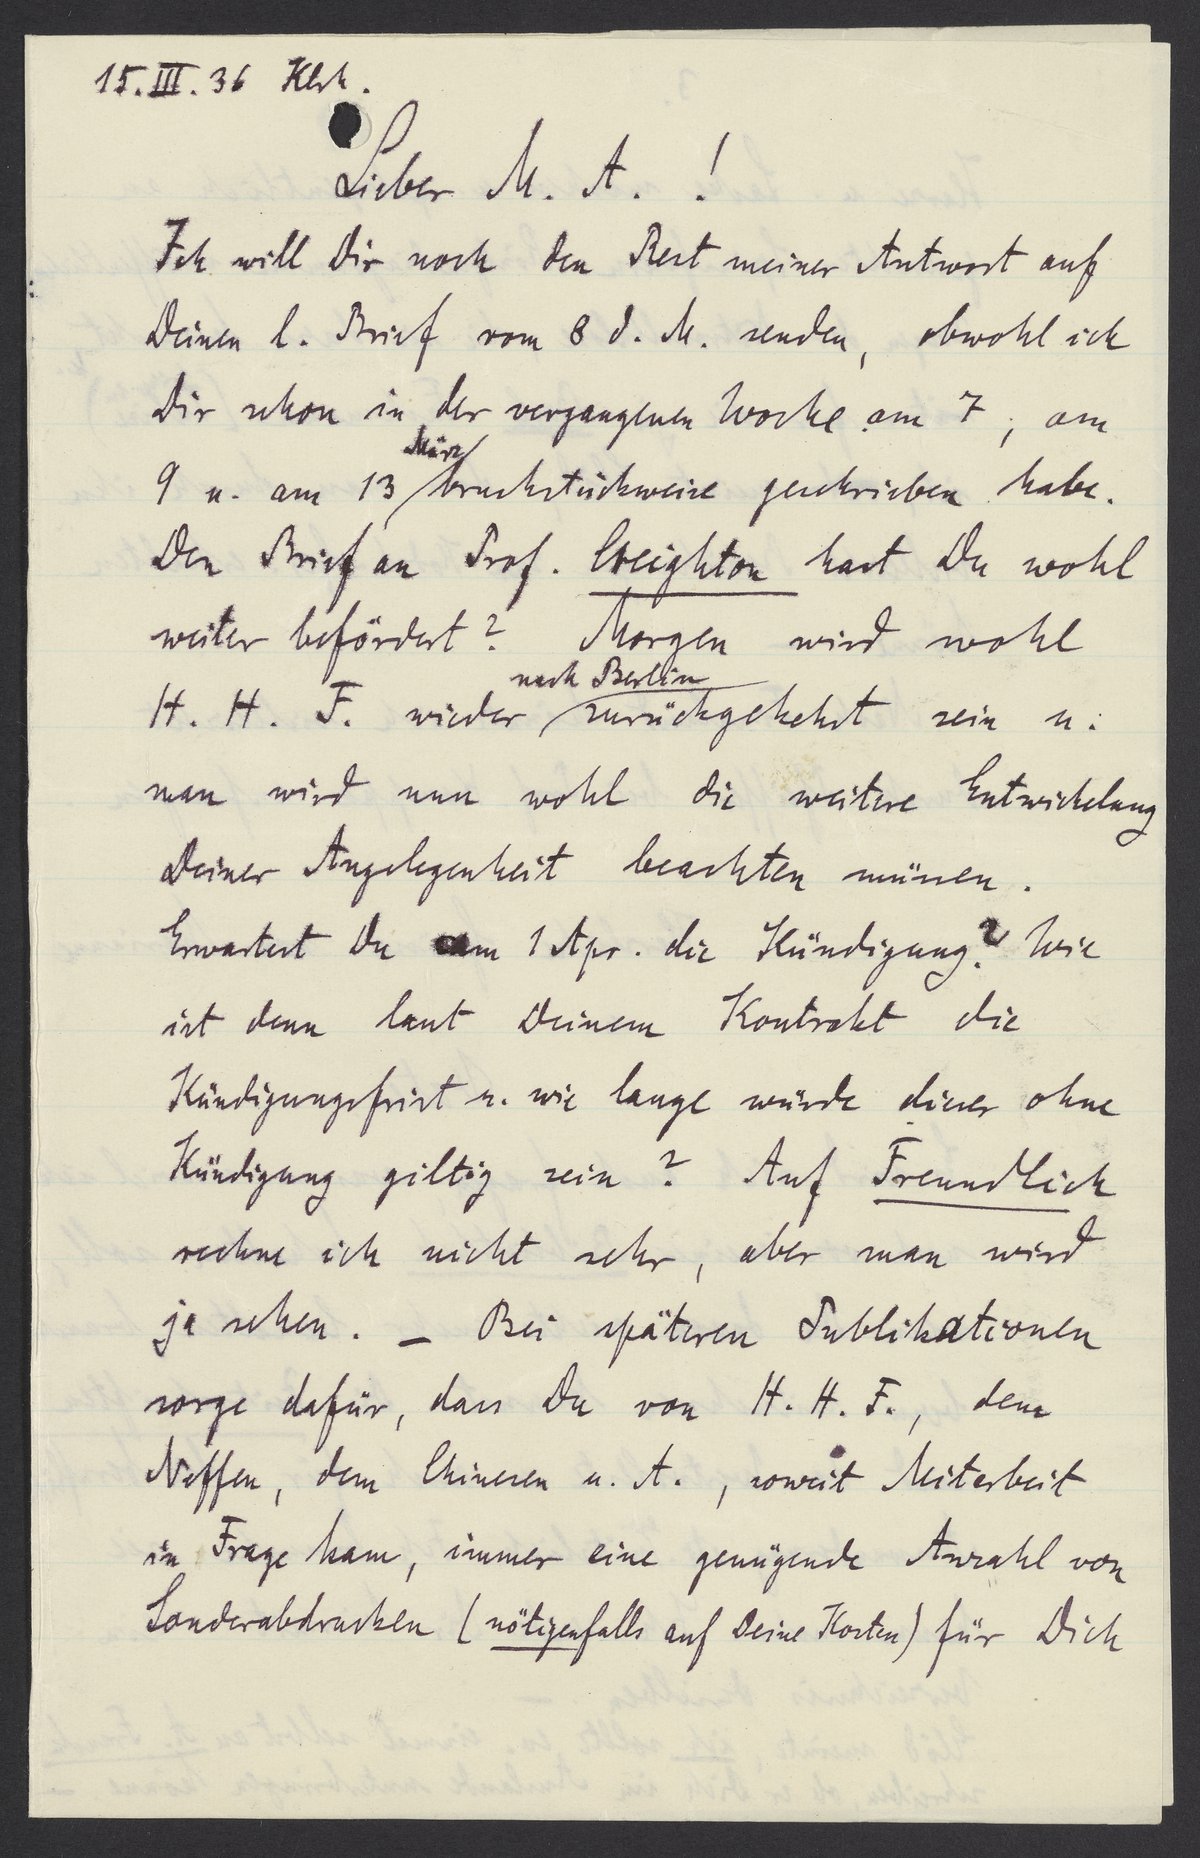 15.III.36 Klsh.
Lieber M. A. !
Ich will Dir noch den Rest meiner Antwort auf
Deinen l. Brief vom 8 d. M. senden, obwohl ich
Dir schon in der vergangenen Woche am 7, am
9 u. am 13 März bruchstückweise geschrieben habe.
Den Brief an Prof. Creighton hast Du wohl
weiter befördert? Morgen wird wohl
H. H. F. wieder nach Berlin zurückgekehrt sein u.
man wird nun wohl die weitere Entwickelung
Deiner Angelegenheit beachten müssen.
Erwartest Du am 1 Apr. die Kündigung? Wie
ist denn laut Deinem Kontrakt die
Kündigungsfrist u. wie lange würde dieser ohne
Kündigung giltig sein? Auf Freundlich
rechne ich nicht sehr, aber man wird
ja sehen. – Bei späteren Publikationen
sorge dafür, dass Du von H. H. F., dem
Neffen, dem Chinesen u. A., soweit Mitarbeit
in Frage kam, immer eine genügende Anzahl von
Sonderabdrucken (nötigenfalls auf Deine Kosten) für Dich